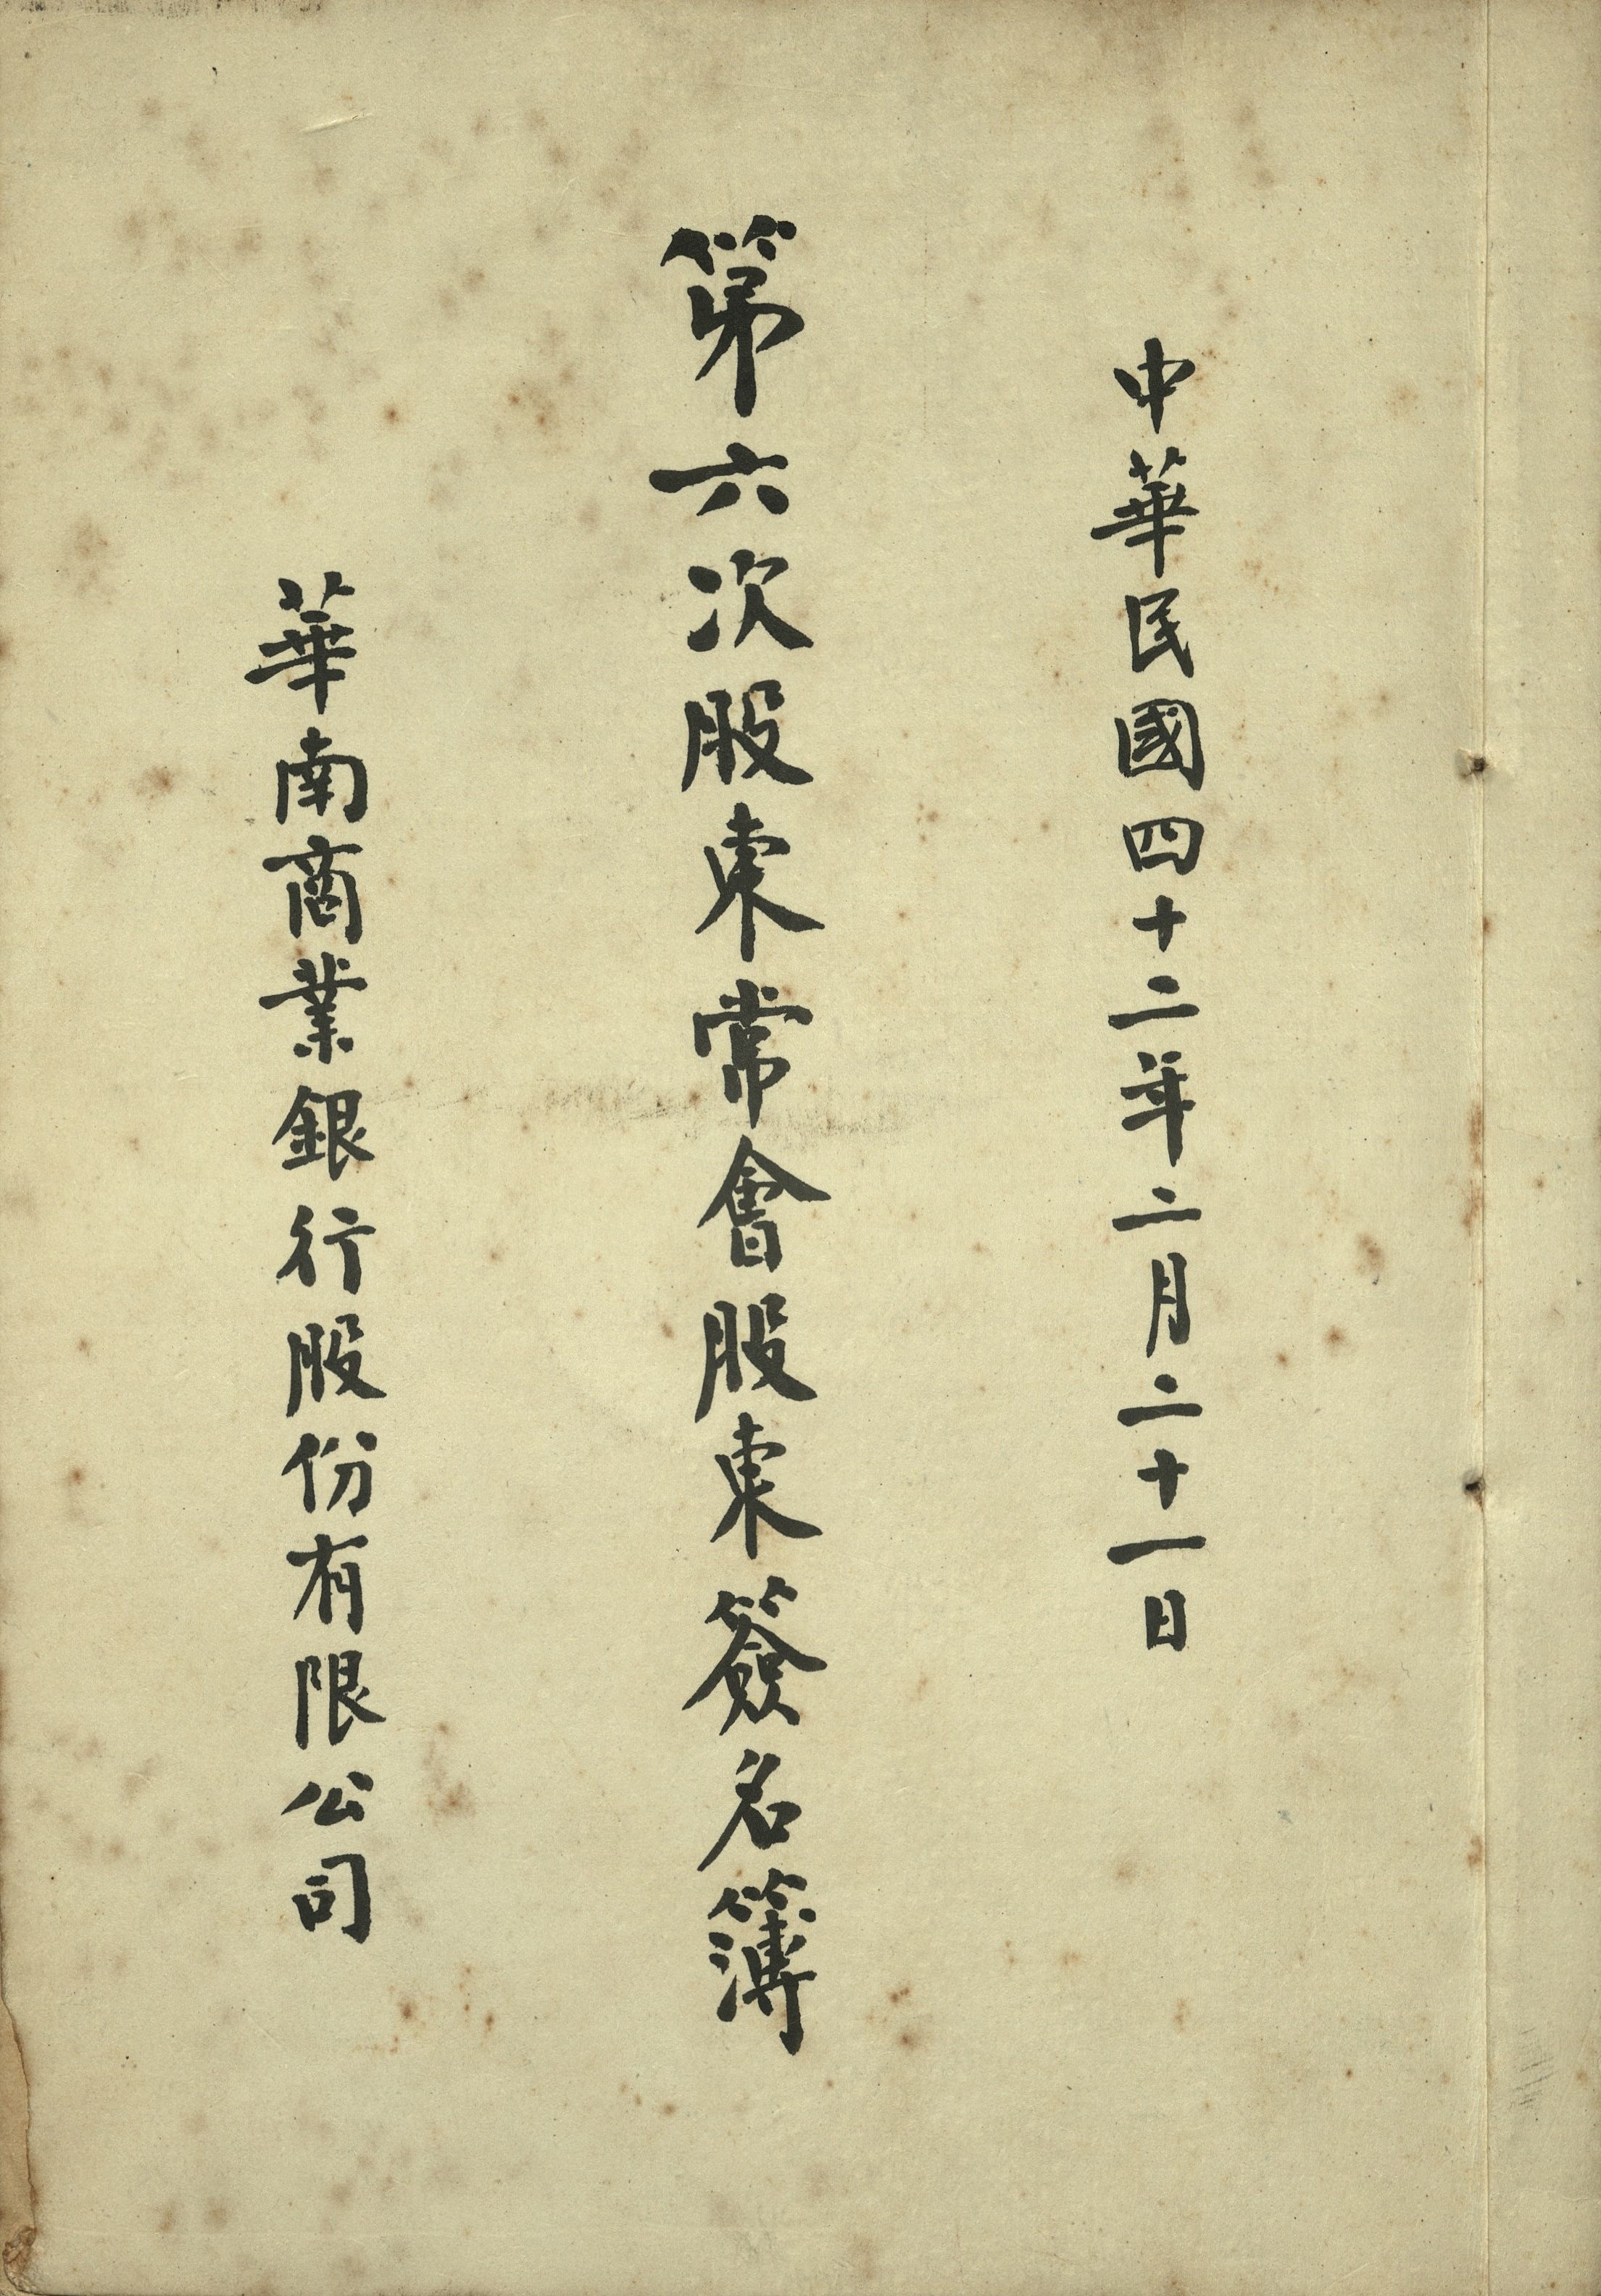 中華民國四十二年二月二十一日
第六次股東常會股東簽名簿
華南商業銀行股份有限公司